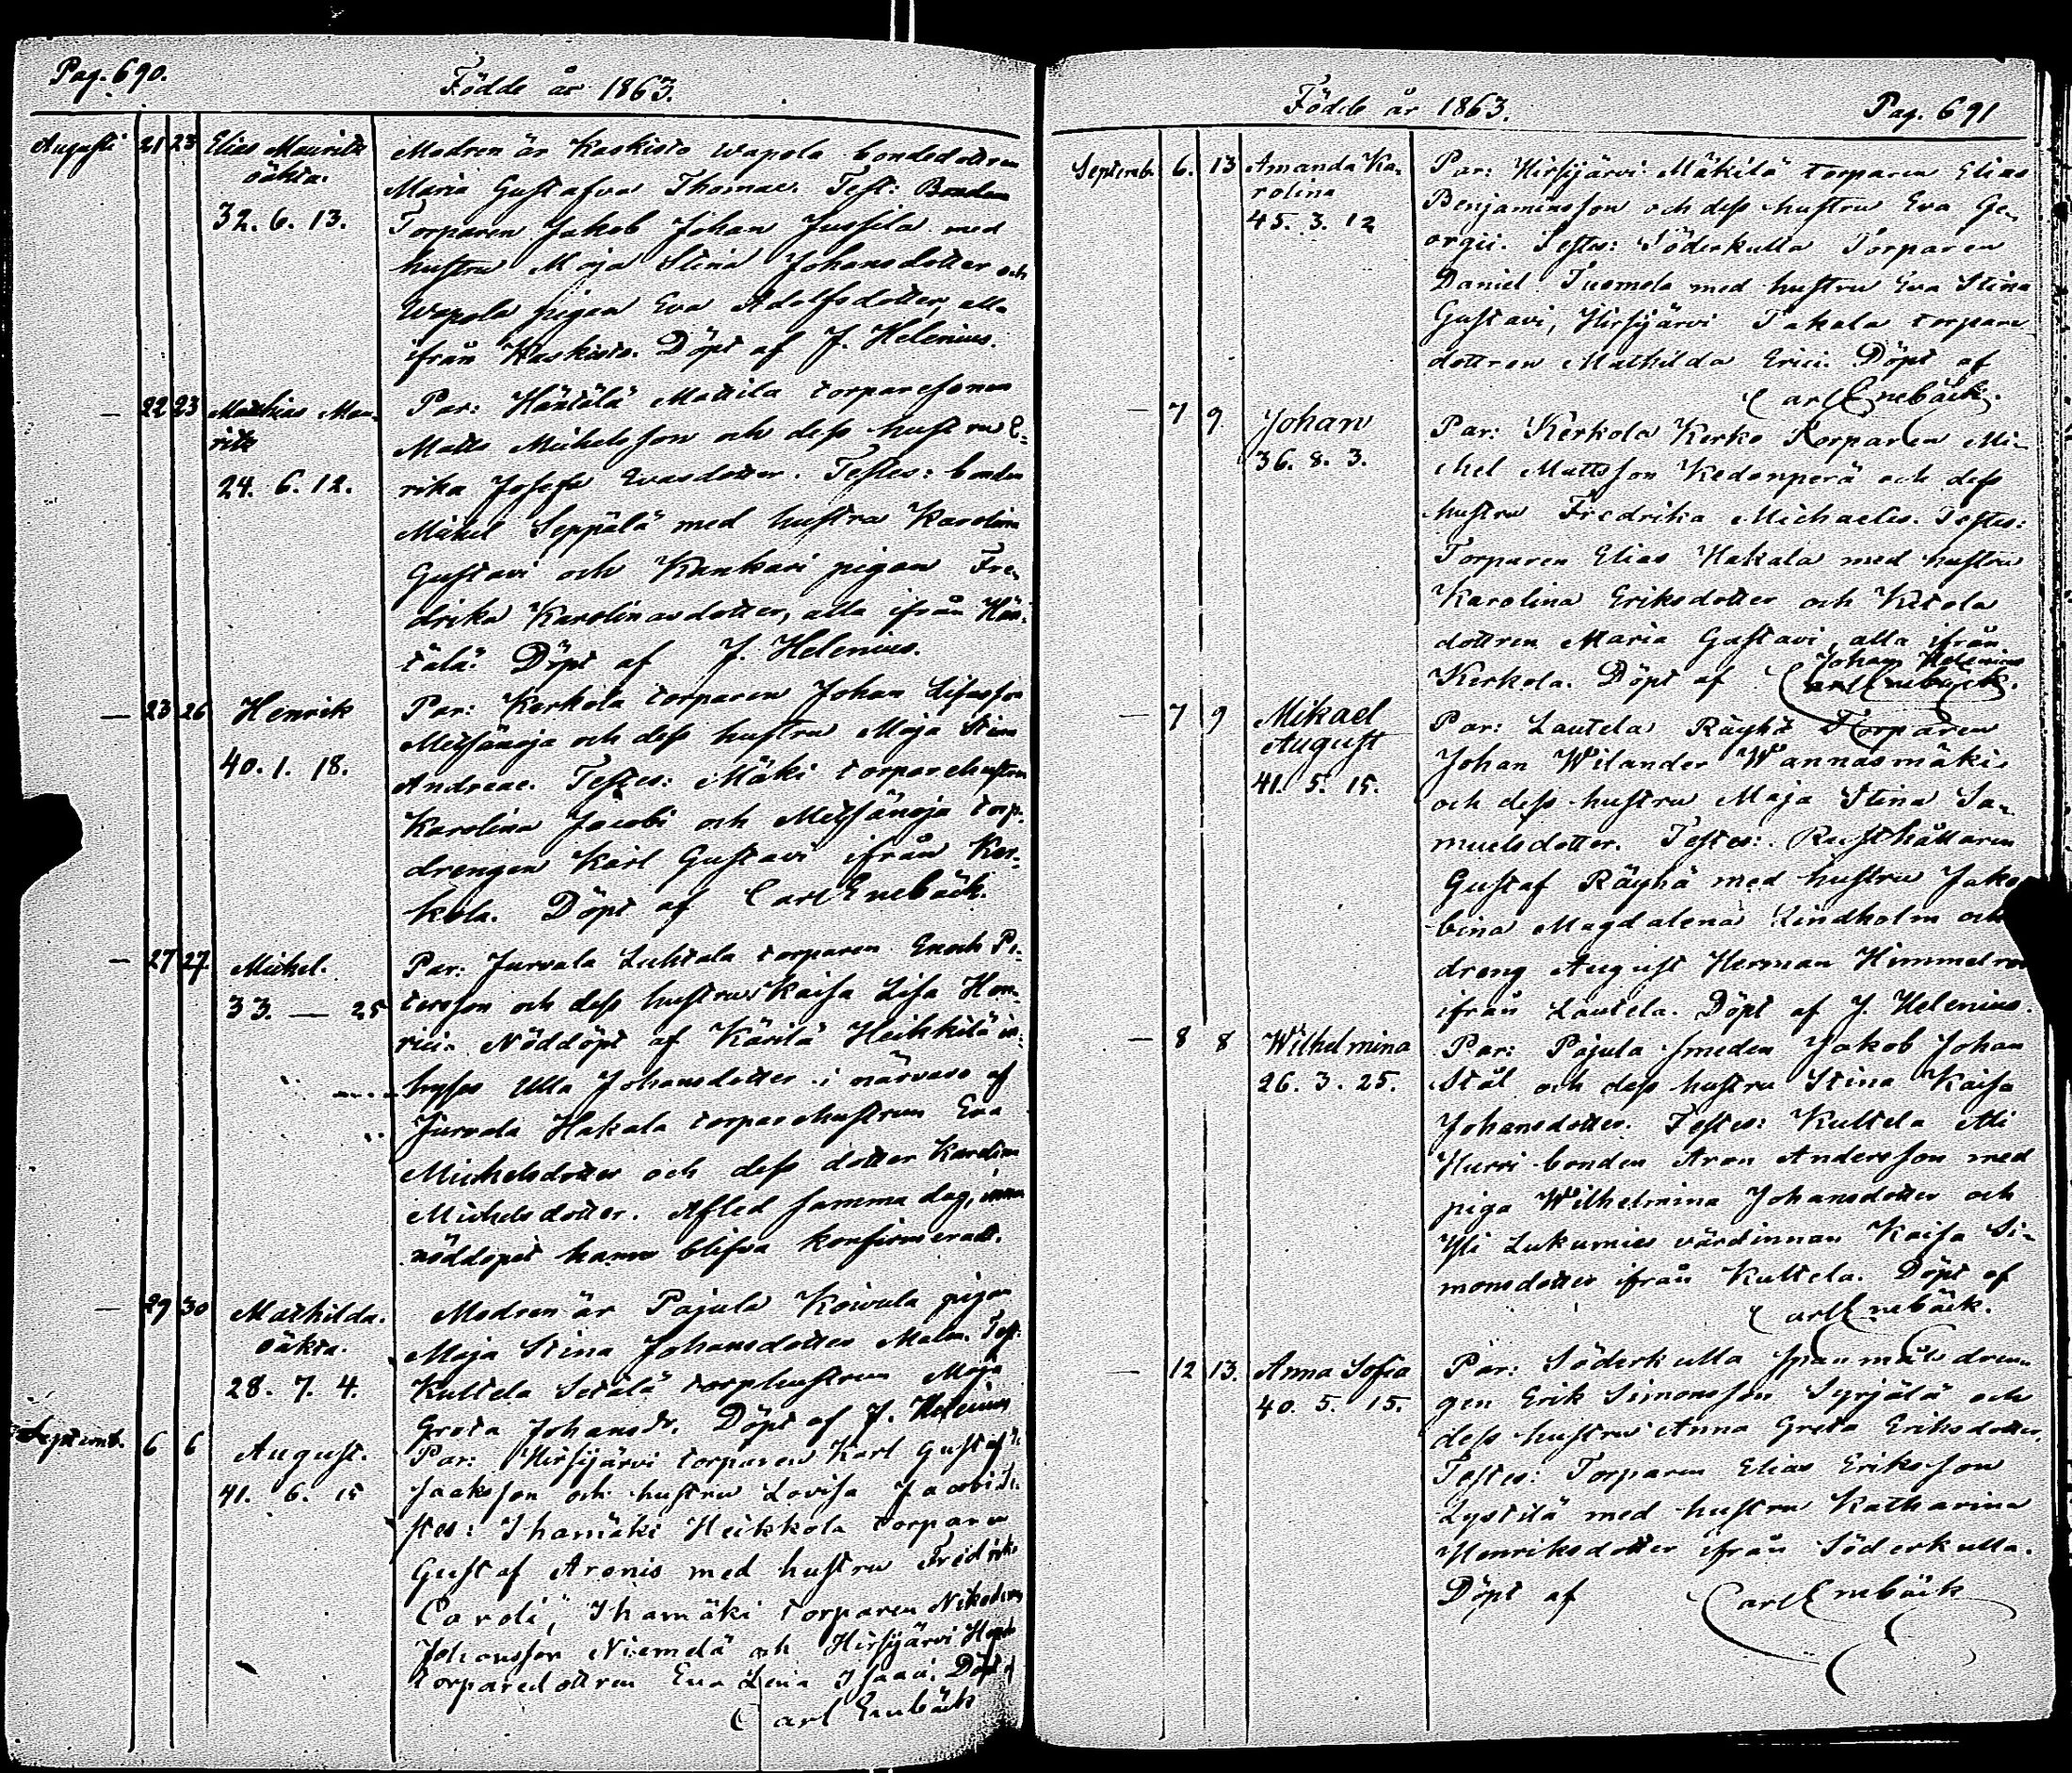 Pag. 690.
Födde år 1863.
Augusti 21 23 Elias Mauritz
oäkta.
32. 6. 13.
Modren är Kaskisto Wapola bondedottren
Maria Gustafva Thomae. Test: Bonden
Torparen Jakob Johan Jussila med
hustru Maja Stina Johansdotter och
Wapola pigan Eva Adolfsdotter, alla
ifrån Kaskisto. Döpt af J. Helenius.
— 22 23 Mathias Mau-
ritz
24. 6. 12.
Par: Häntälä Mattila torparesonen
Matts Michelsson och dess hustru E-
rika Josefa Evasdotter. Testes: bonden
Michel Seppälä med hustru Karolina
Gustavi och Kankari pigan Fre-
drika Karolinasdotter, alla ifrån Hän-
tälä. Döpt af J. Helenius.
— 23 26 Henrik
40. 1. 18.
Par: Kerkola torparen Johan
Metsänoja och dess hustru Maja Stina
Andreae. Testes: Mäki torparehustrun
Karolina Jacobi och Metsänoja torp.
drengen Karl Gustavi ifrån Ker-
kola. Döpt af Carl Enebäck.
— 27 27. Michel.
33. — 25
Par: Jurvala Luhtala torparen Enoch Pe-
tersson och dess hustru Kaisa Lisa Hen-
rici. Nöddöpt af Käritä Heikkilä in-
hyses Ulla Johansdotter i närvaro af
Jurvala Hakala torparehustrun Eva
Michelsdotter och dess dotter Karolina
Michelsdotter. Afled samma dag, innan
nöddopet hann blifva konfirmeradt.
— 29 30 Mathilda.
oäkta.
28. 7. 4.
Modren är Pajula Koivula pigan
Maja Stina Johansdotter Malm. Test:
Kultela Setälä torphustrun Maja
Greta Johansdr. Döpt af J. Helenius
Septemb. 6 6 August.
41. 6. 15
Par: Hirsijärvi torparen Karl Gustaf
Isaksson och hustru Lovisa Jacobi. Te-
stes: Ihamäki Heikkola torparen
Gustaf Aronis med hustru Fredrika
Caroli, Ihamäki torparen Nikodemus
Johansson Niemelä och Hirsijärvi
torparedottren Eva Lena Isaaci. Döpt af
Carl Enebäck
Födde år 1863.
Pag. 691
Septemb. 6. 13 Amanda Ka-
rolina
45. 3. 12
Par: Hirsijärvi Mäkilä torparen Elias
Benjaminsson och dess hustru Eva Ge-
orgii. Testes: Söderkulla Torparen
Daniel Tuomola med hustru Eva Stina
Gustavi, Hirsijärvi Takala torpare-
dottren Mathilda Erici. Döpt af
Carl Enebäck.
— 7 9 Johan
36. 8. 3.
Par: Kerkola Kerko Torparen Mi-
chel Mattsson Kedonperä och dess
hustru Fredrika Michaelis. Testes:
Torparen Elias Hakala med hustru
Karolina Eriksdotter och Ketola
dottren Maria Gustavi, alla ifrån
Johan Helenius
Kerkola. Döpt af Carl Enebäck.
— 7 9 Mikael
August
41. 5. 15.
Par: Lautela Räyhä Torparen
Johan Wilander Wannasmäki
och dess hustru Maja Stina Sa-
muelsdotter. Testes: Rusthållaren
Gustaf Räyhä med hustru Jako-
bina Magdalena Lindholm och
dreng August Herman Himmelroos
ifrån Lautela. Döpt af J. Helenius.
— 8 8 Wilhelmina
26. 3. 25.
Par: Pajula smeden Jakob Johan
Stål och dess hustru Stina Kaisa
Johansdotter. Testes: Kultela Ali
Hurri bonden Aron Andersson med
piga Wilhelmina Johansdotter och
Yli Lukumies värdinnan Kaisa Si-
monsdotter ifrån Kultela. Döpt af
Carl Enebäck.
— 12 13. Anna Sofia
40. 5. 15.
Par: Söderkulla spanmåls dren-
gen Erik Simonsson Syrjälä och
dess hustru Anna Greta Eriksdotter.
Testes: Torparen Elias Eriksson
Lystilä med hustru Katharina
Henriksdotter ifrån Söderkulla.
Döpt af Carl Enebäck